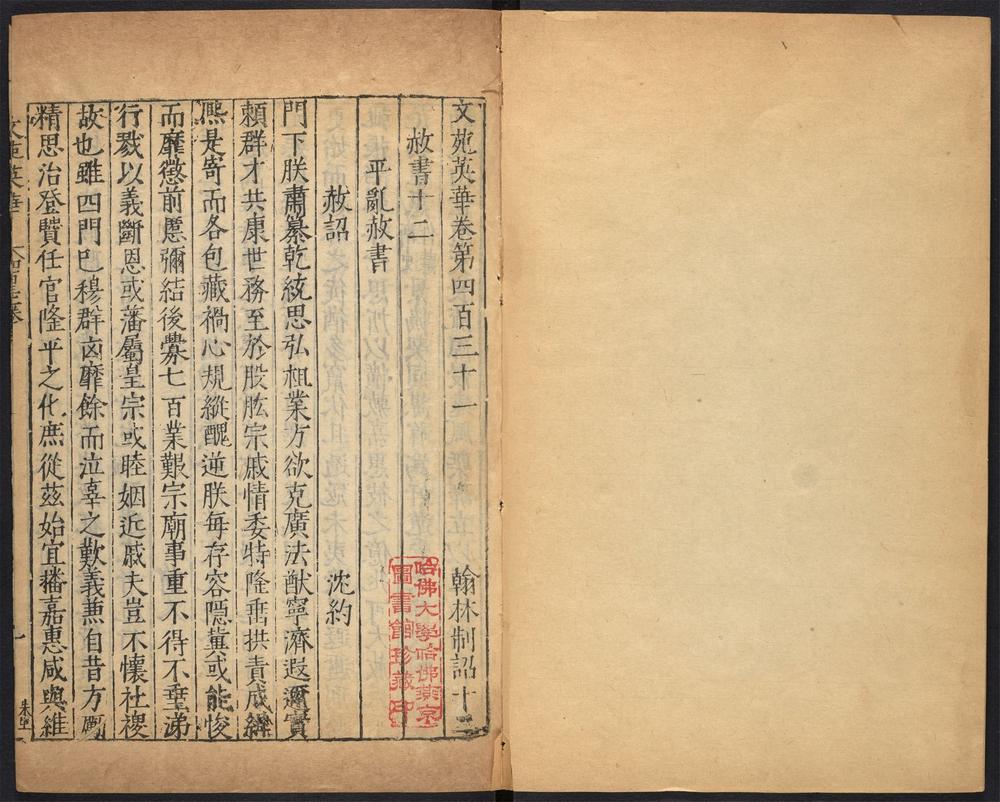 文苑英華卷第四百三十一 翰林制詔十二
赦書十二
平亂赦書
赦詔 沈約
門下朕肅纂乾統思弘祖業方欲克廣法猷寧濟遐邇實
頼群才共康世務至於股肱宗戚情委特隆垂拱責成緝
熈是寄而各包藏禍心規縱醜逆朕每存容隱冀或能悛
而靡懲前慝彌結後釁七百業艱宗廟事重不得不垂涕
行戮以義斷恩或藩屬皇宗或睦姻近戚夫豈不懷社稷
故也雖四門巳穆群凶靡餘而泣辜之歎義兼自昔方厲
精思治登賢任官隆平之化庶從兹始宜播嘉惠咸與維
文苑英華
哈佛大學哈佛燕京
圖書館珍藏印